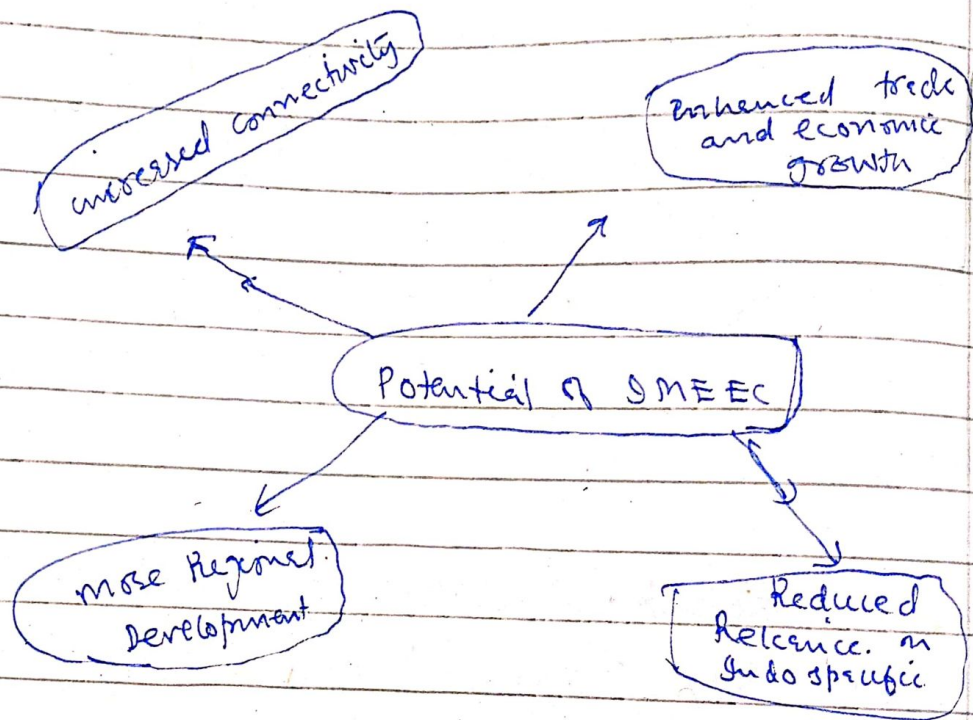 increased connectivity
Enhanced trade
and economic
growth
Potential of IMEEC
More Regional
Development
Reduced
Reliance on
Indo specific